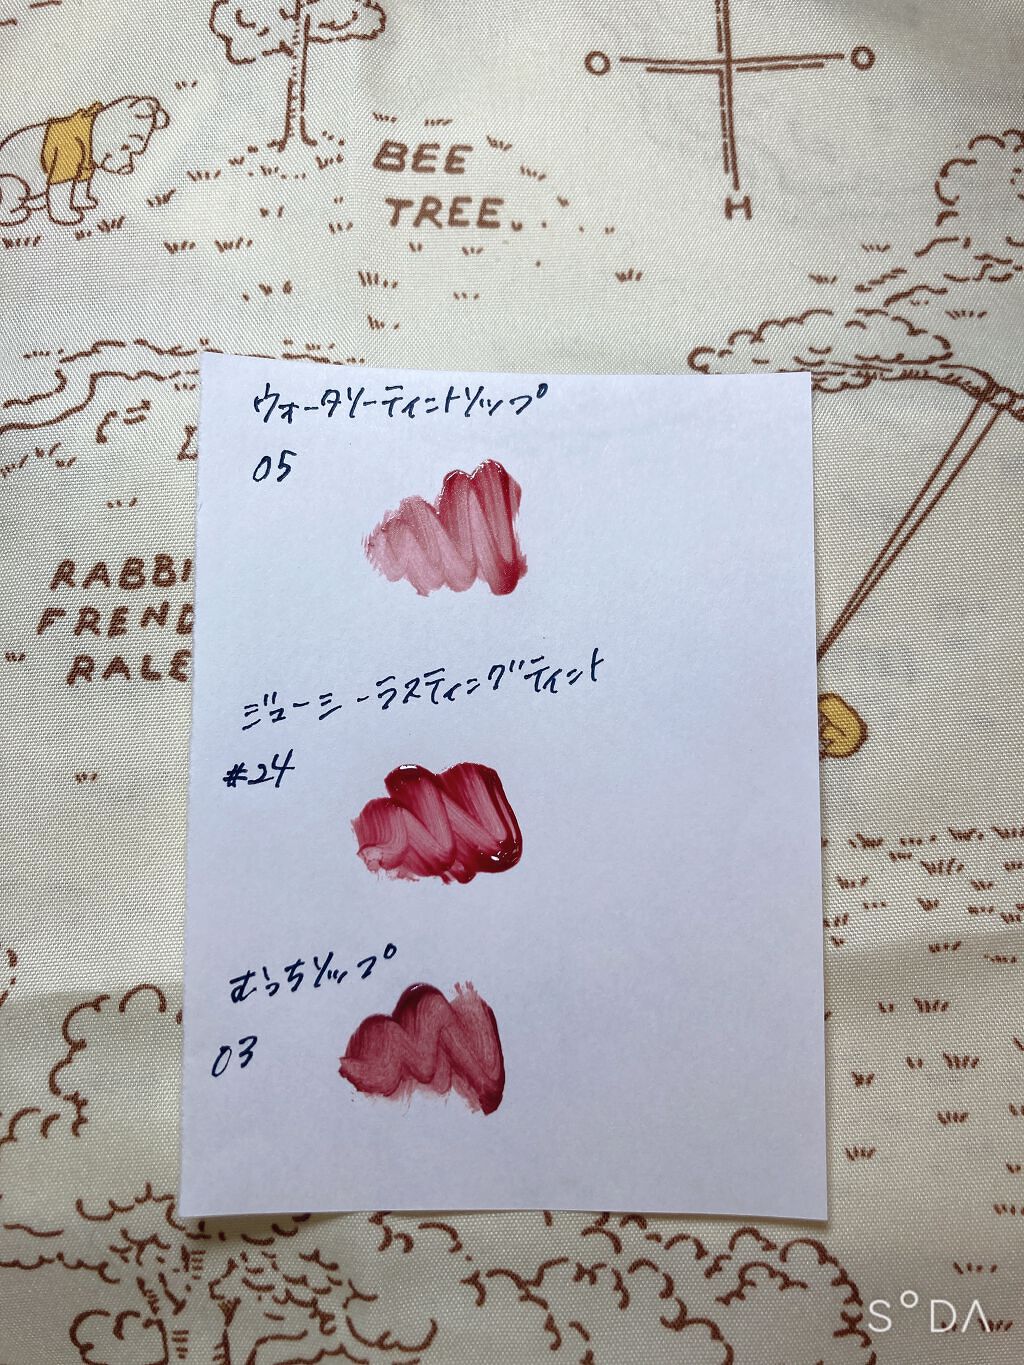 O
O
H
BEE
TREE.
ウォータリーティントリップ
05
RABBI
FREND
RALE
ジューシーラスティングティント
#24
むっちリップ
03
SODA